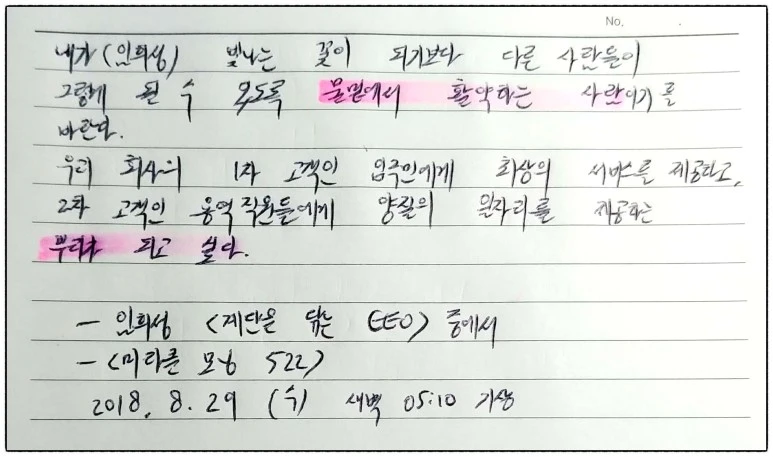 No.
내가 (임희성) 빛나는 꽃이 되기보다 다른 사람들이
그렇게 될 수 있도록 물밑에서 활약하는 사람이기를
바란다.
우리 회사의 1차 고객인 입주민에게 최상의 서비스를 제공하고,
2차 고객인 용역 직원들에게 양질의 일자리를 제공하는
뿌리가 되고 싶다.
- 임희성 <계단을 닦는 CEO> 중에서
- <미라클 모닝 522>
2018. 8. 29 (수) 새벽 05:10 기상